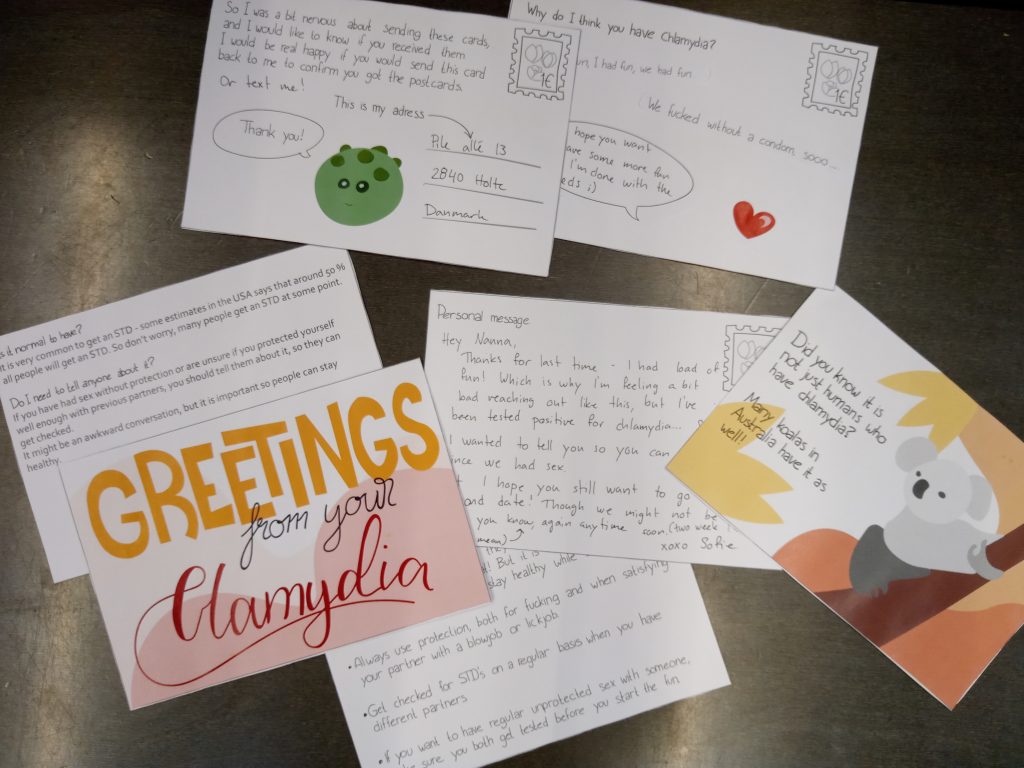 So I was a bit nervous about sending these cards,
and I would like to know if you received them
I would be real happy if you would send this card
back to me to confirm you got the postcards.
Or text me!
This is my adress
Thank you!
Pile allé 13
2840 Holte
Danmark
1€
Why do I think you have Chlamydia?
fun, I had fun, we had fun
We fucked without a condom, sooo...
hope you want
ave some more fun
I'm done with the
eds ;)
1€
it normal to have?
It is very common to get an STD - some estimates in the USA says that around 50 %
all people will get an STD. So don't worry, many people get an STD at some point.
Do I need to tell anyone about it?
If you have had sex without protection or are unsure if you protected yourself
well enough with previous partners, you should tell them about it, so they can
get checked.
It might be an awkward conversation, but it is important so people can stay
healthy.
GREETINGS
from your
Clamydia
Personal message
Hey Nanna,
Thanks for last time - I had load of
fun! Which is why I'm feeling a bit
bad reaching out like this, but I've
been tested positive for chlamydia...
I wanted to tell you so you can
nce we had sex.
I hope you still want to go
ond date! Though we might not be
you know again anytime soon. (two week
mean)
xoxo Sofie
Did you know it is
not just humans who
have chlamydia?
Many koalas in
Australia have it as
well!
they
! But it is
stay healthy while
• Always use protection, both for fucking and when satisfying
your partner with a blowjob or lickjob
• Get checked for STD's on a regular basis when you have
different partners
• If you want to have regular unprotected sex with someone,
ke sure you both get tested before you start the fun